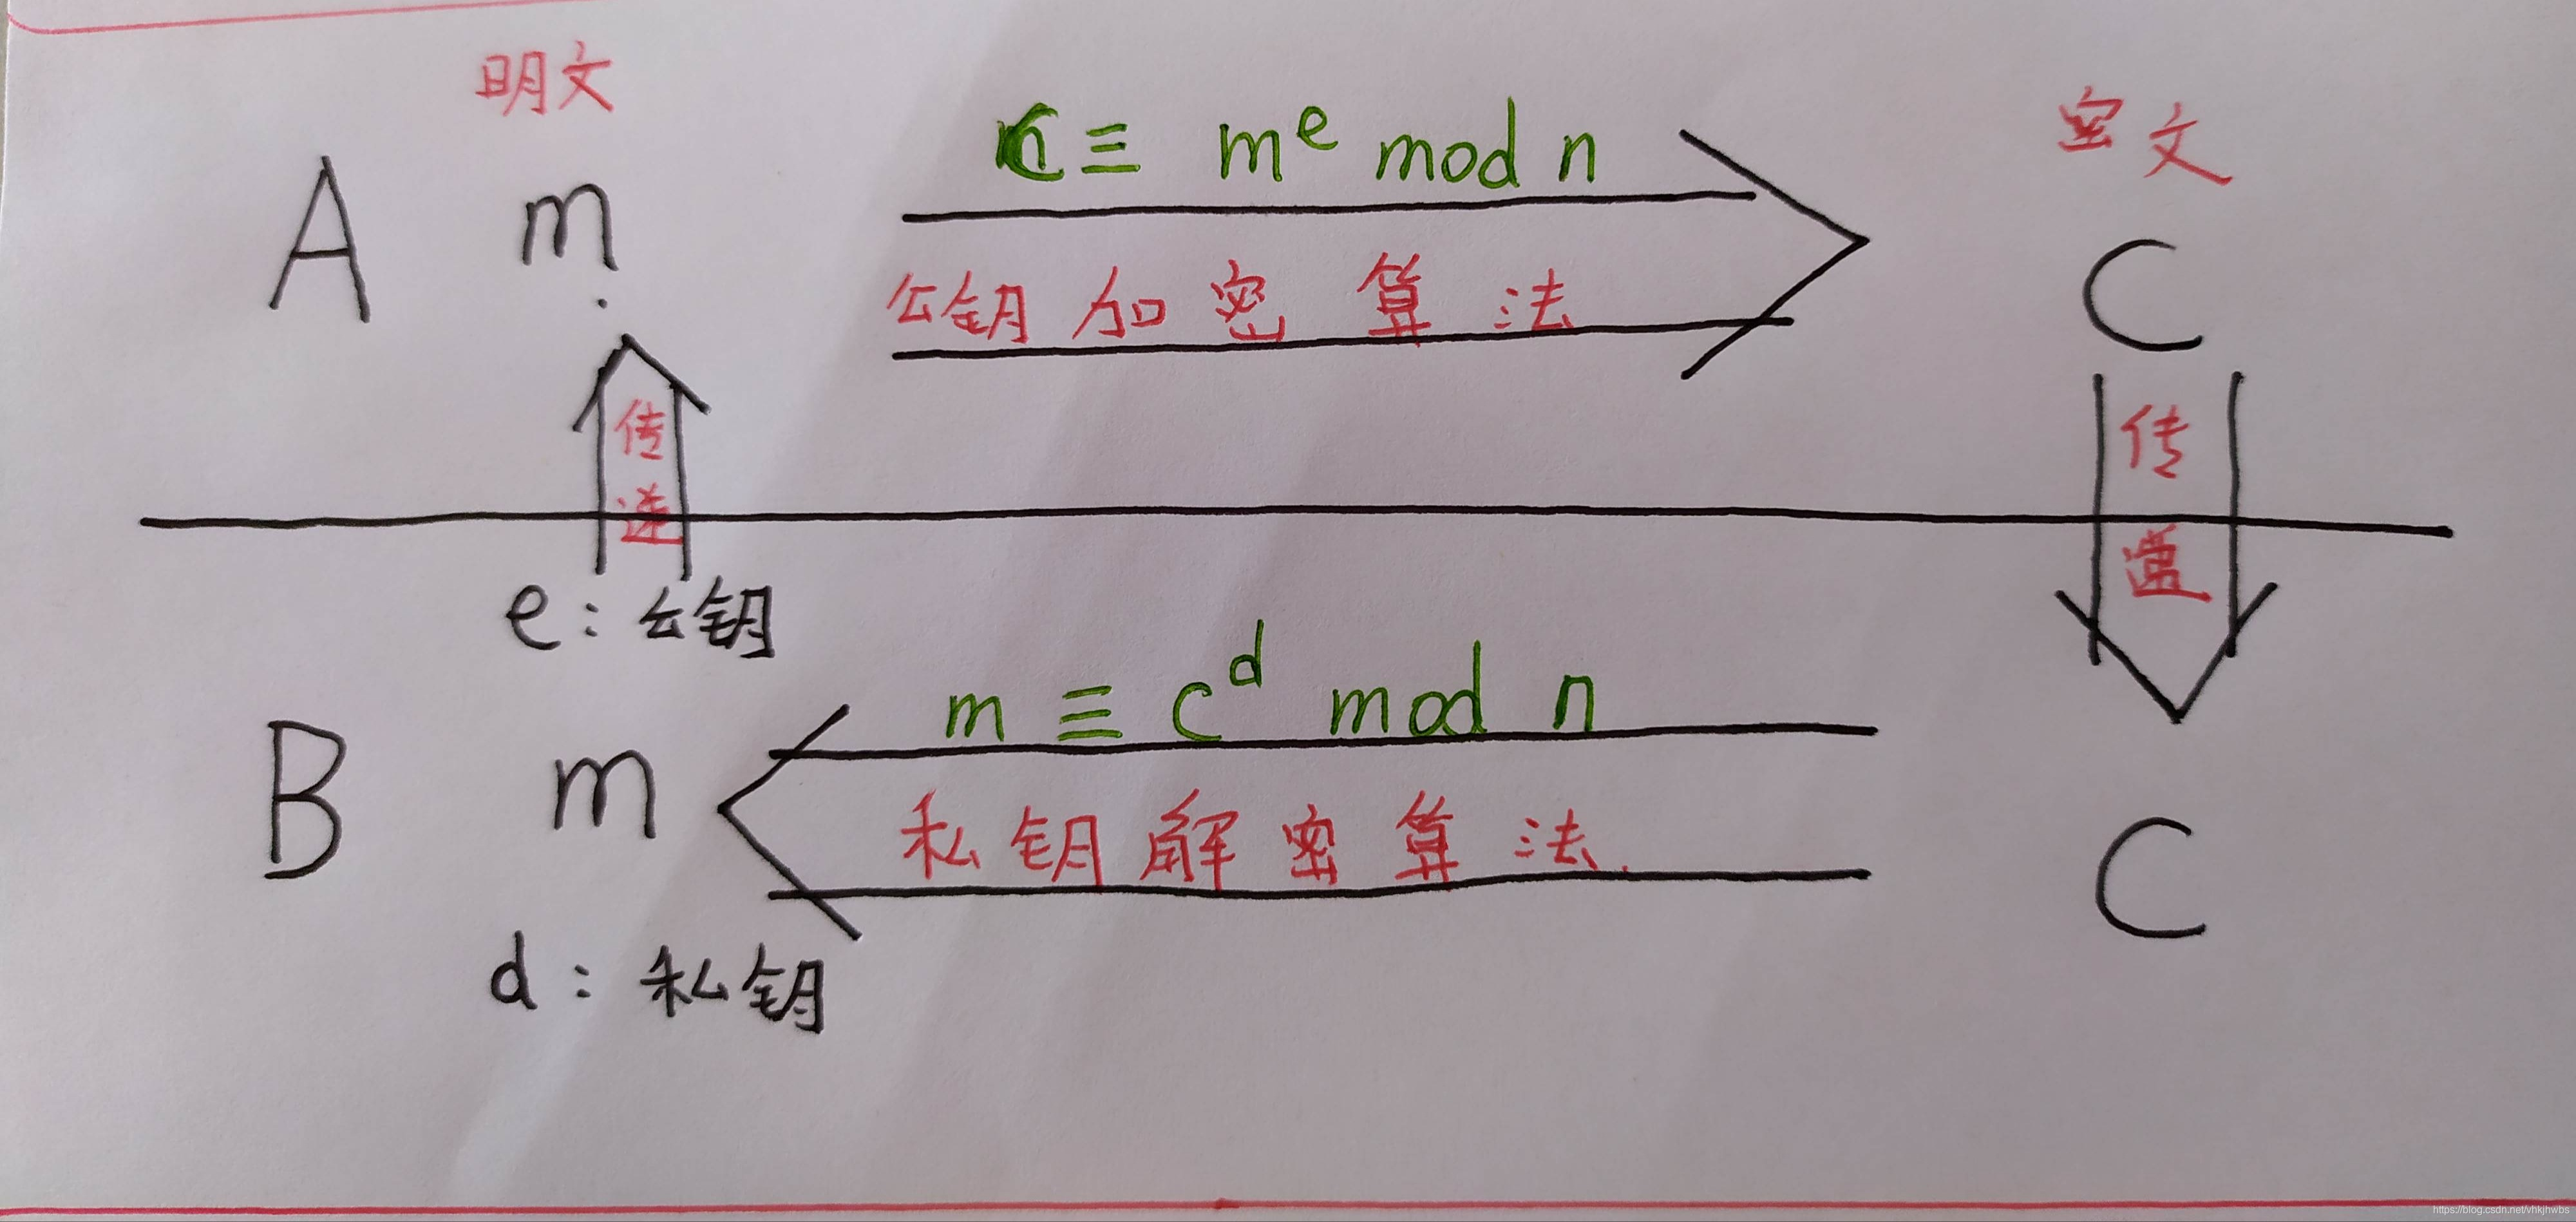 明文
密文
C ≡ m^e mod n
A m
公钥加密算法
C
传
递
传
递
e：公钥
m ≡ c^d mod n
B m
私钥解密算法
C
d：私钥
https://blog.csdn.net/vhkjhwbs